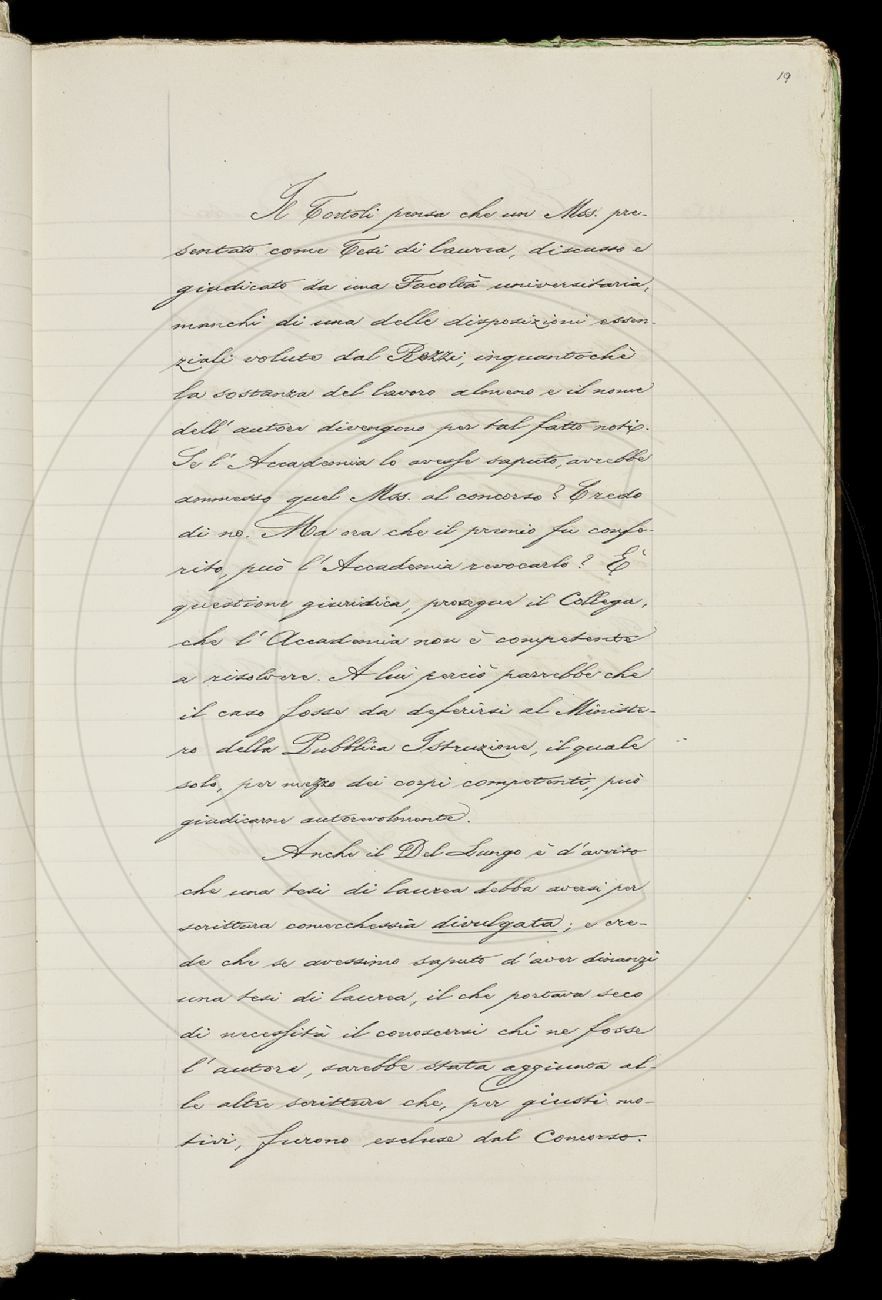 19
Il Tortoli pensa che un Mss. pre-
sentato come Tesi di laurea, discusso e
giudicato da una Facoltà universitaria,
manchi di una delle disposizioni essen-
ziali volute dal Rezzi, inquantochè
la sostanza del lavoro almeno e il nome
dell' autore divengono per tal fatto noti.
Se l' Accademia lo avesse saputo, avrebbe
ammesso quel Mss. al concorso? Credo
di no. Ma ora che il premio fu confe-
rito, può l' Accademia revocarlo? È
questione giuridica, prosegue il Collega,
che l' Accademia non è competente
a risolvere. A lui perciò parrebbe che
il caso fosse da deferirsi al Ministe-
ro della Pubblica Istruzione, il quale
solo, per mezzo dei corpi competenti, può
giudicarne autorevolmente.
Anche il Del Lungo è d'avviso
che una tesi di laurea debba aversi per
scrittura comecchessia divulgata; e cre-
de che se avessimo saputo d'aver dinanzi
una tesi di laurea, il che portava seco
di necessità il conoscersi chi ne fosse
l' autore, sarebbe stata aggiunta al-
le altre scritture che, per giusti mo-
tivi, furono escluse dal Concorso.